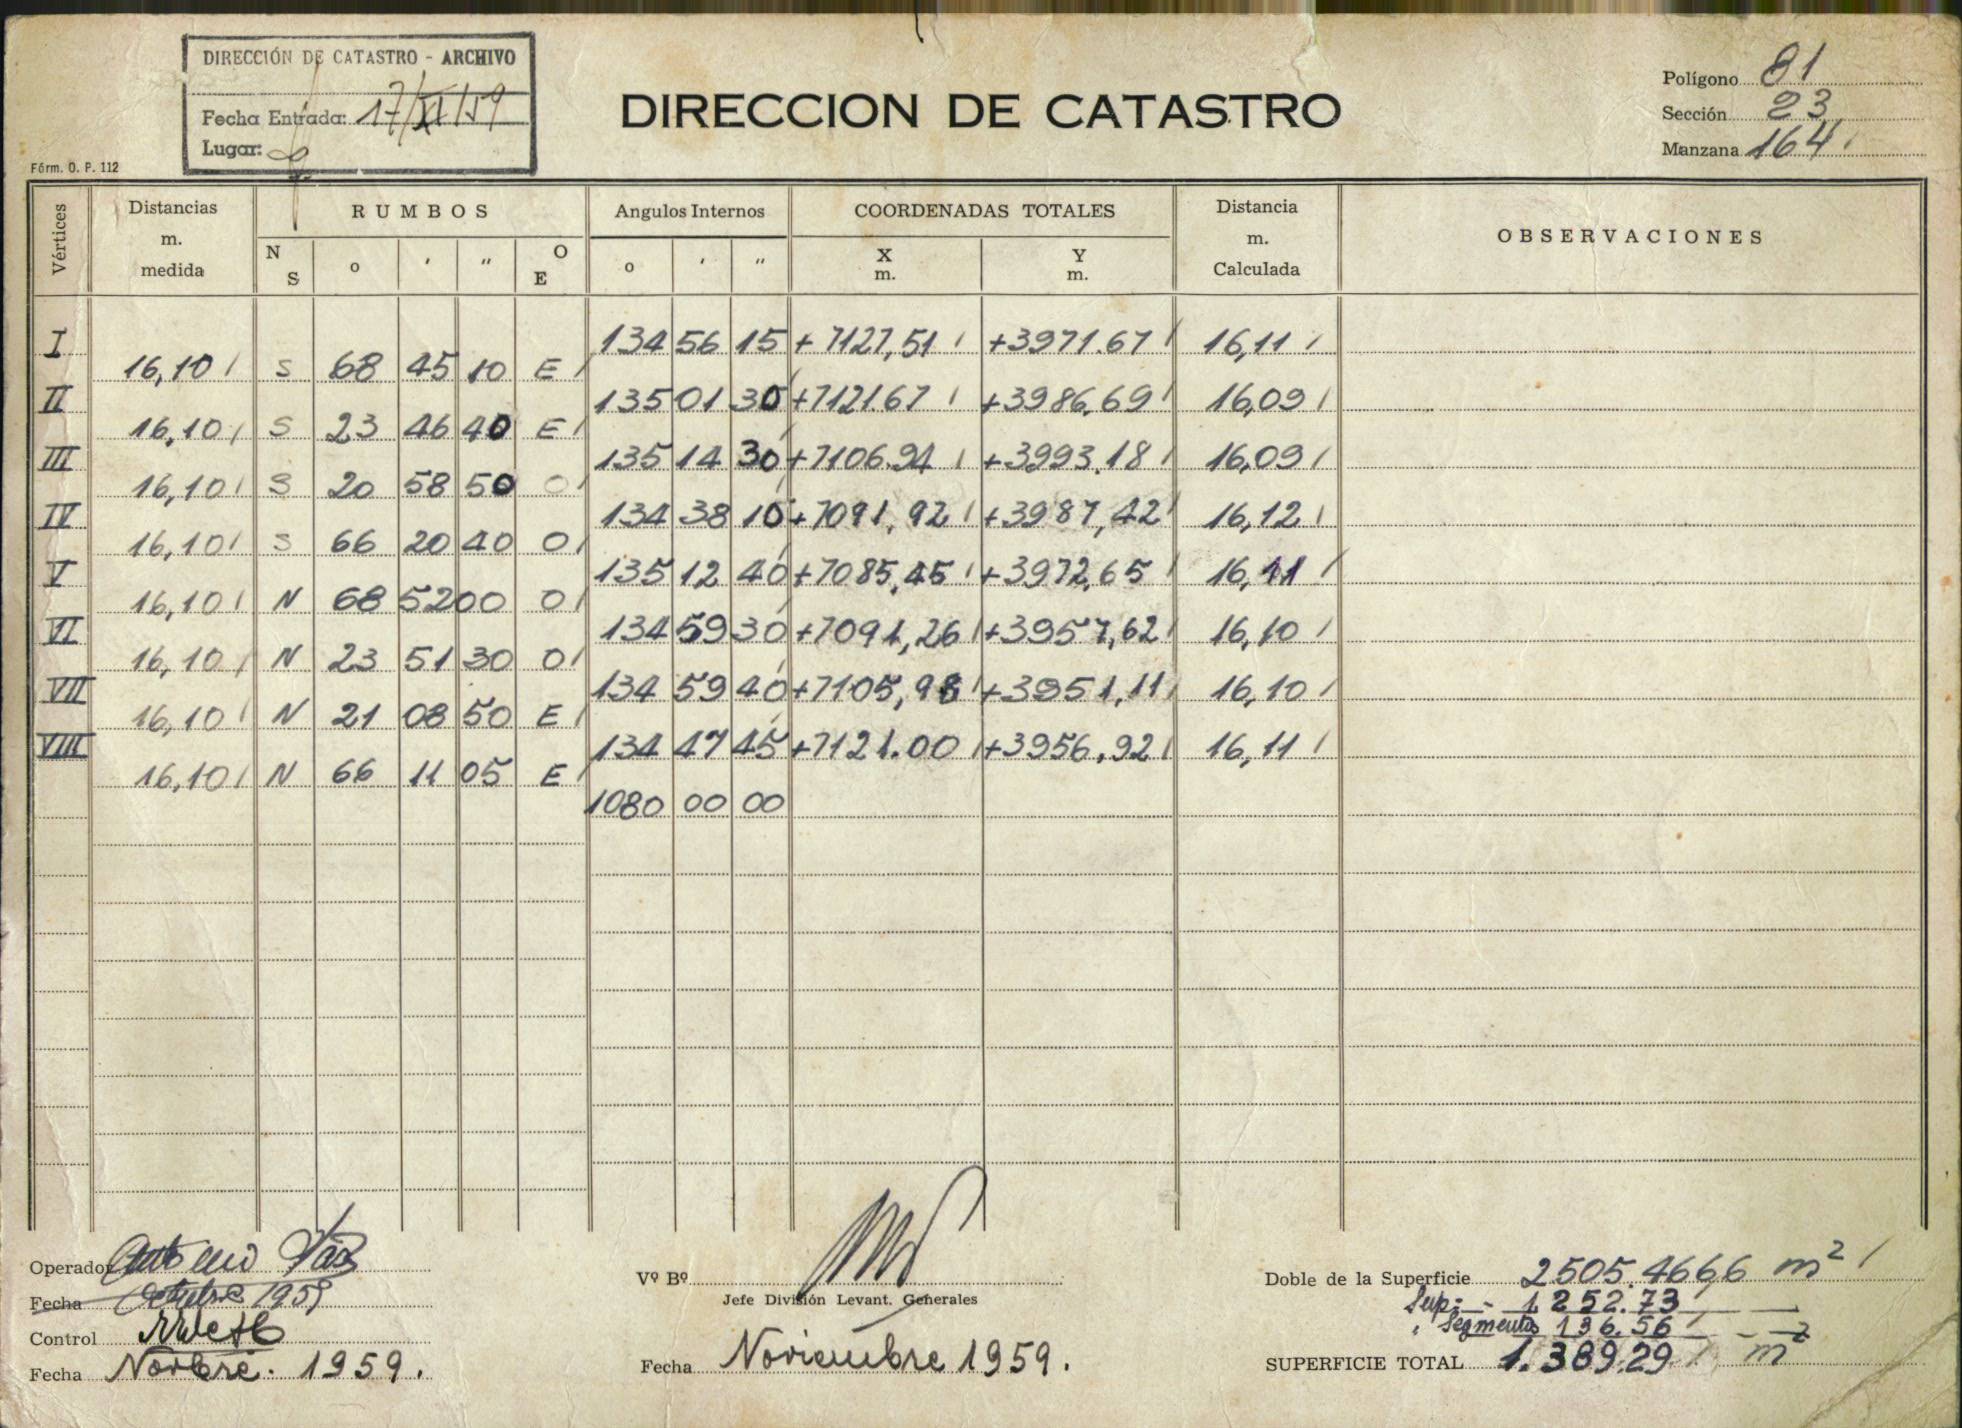 DIRECCIÓN DE CATASTRO - ARCHIVO
Fecha Entrada: 17/XI/59
Lugar:
Fórm. O. P. 112
DIRECCION DE CATASTRO
Polígono 81
Sección 23
Manzana 164
Vértices Distancias m. medida RUMBOS N S o ' " O E Angulos Internos o ' " COORDENADAS TOTALES X m. Y m. Distancia m. Calculada OBSERVACIONES
I 134 56 15 +7127,51 +3971.67 16,11
16,10 S 68 45 10 E
II 135 01 30 +7121.67 +3986,69 16,09
16,10 S 23 46 40 E
III 135 14 30 +7106.94 +3993.18 16,09
16,10 S 20 58 50 O
IV 134 38 10 +7091,92 +3987,42 16,12
16,10 S 66 20 40 O
V 135 12 40 +7085,45 +3972,65 16,11
16,10 N 68 52 00 O
VI 134 59 30 +7091,26 +3957,62 16,10
16,10 N 23 51 30 O
VII 134 59 40 +7105,98 +3951,11 16,10
16,10 N 21 08 50 E
VIII 134 47 45 +7121.00 +3956,92 16,11
16,10 N 66 11 05 E
1080 00 00
Operador
Fecha Octubre 1959
Control
Fecha Novbre. 1959.
Vº Bº
Jefe División Levant. Generales
Fecha Noviembre 1959.
Doble de la Superficie 2505.4666 m²
Sup: - 1.252.73
" Segmentos 136.56
SUPERFICIE TOTAL 1.389.29 m²